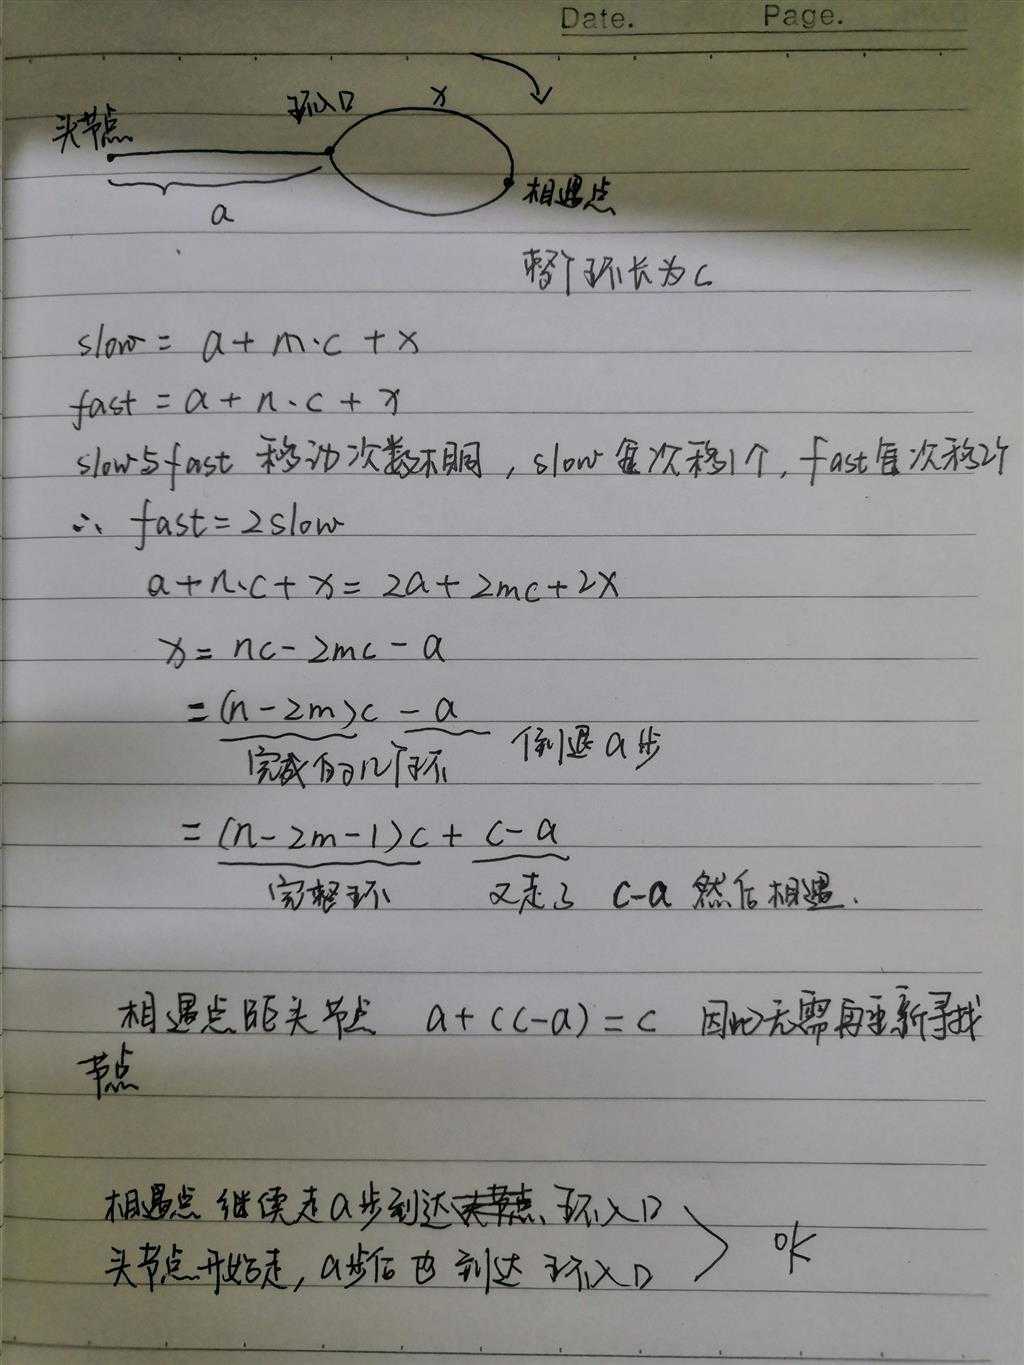 Date. Page.
头节点
环入口
x
a
相遇点
整个环长为c
slow = a + m·c + x
fast = a + n·c + x
slow与fast 移动次数相同, slow每次移1个, fast每次移2个
∴ fast = 2slow
a + n·c + x = 2a + 2mc + 2x
x = nc - 2mc - a
= (n - 2m)c - a
完成的几个环 倒退a步
= (n - 2m - 1)c + c - a
完整环 又走了 c-a 然后相遇.
相遇点距头节点 a + (c-a) = c 因此无需再重新寻找
节点
相遇点继续走a步到达 环入口
头节点开始走, a步后也到达 环入口
ok